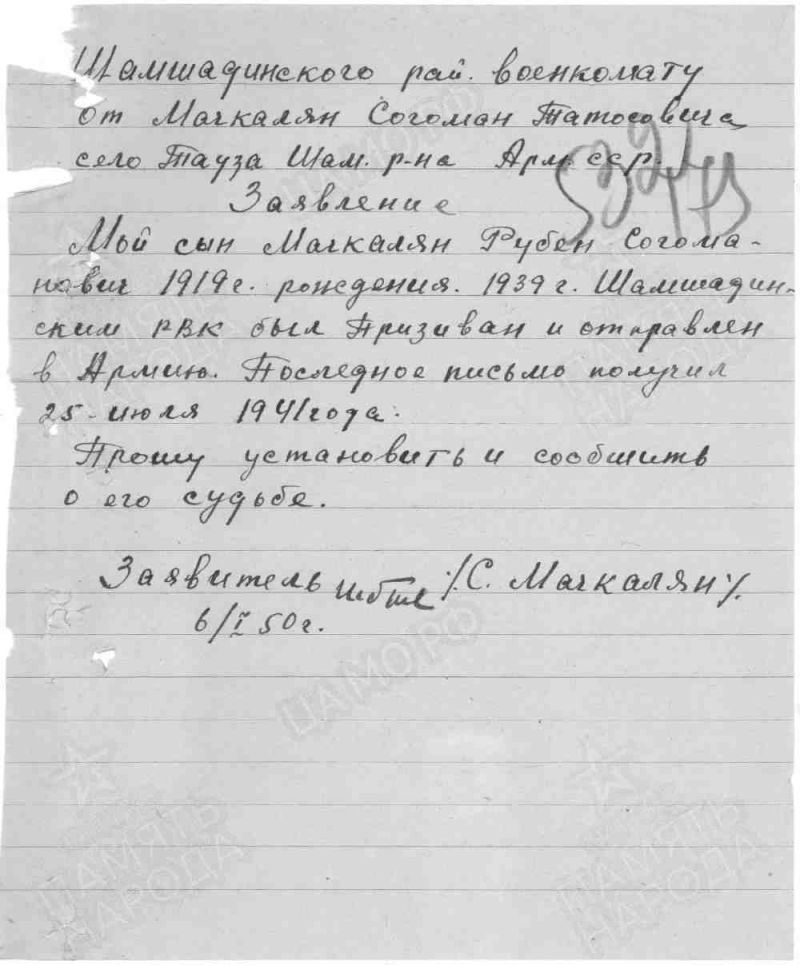 Шамшадинского рай. военкомату
от Мачкалян Согоман Татосовича
село Тауза Шам. р-на Арм. сср.
Заявление
Мой сын Мачкалян Рубен Согома-
нович 1919 г. рождения. 1939 г. Шамшадин-
ским РВК был Призиван и отправлен
в Армию. Последное письмо получил
25-июля 1941 года.
Прошу установить и сообшить
о его судьбе.
Заявитель /С. Мачкалян/.
6/I 50 г.
ЦАМО РФ
ПАМЯТЬ
НАРОДА